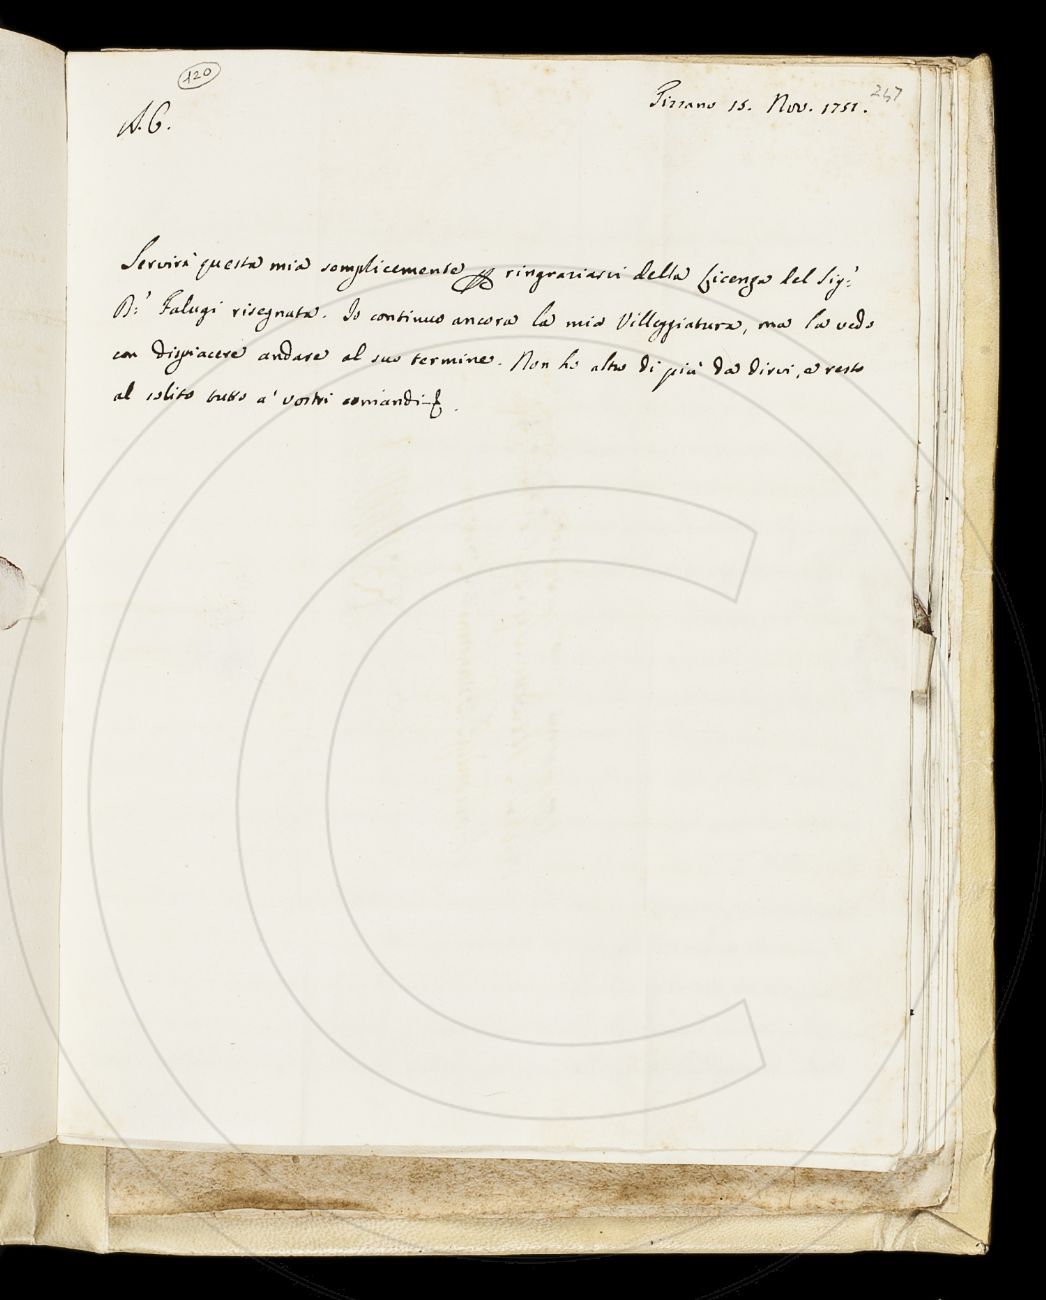 120
247
Pissano 15. Nov. 1751.
A. C.
Servirà questa mia semplicemente per ringraziarvi della licenza del Sig:
D: Falugi risegnata. Io continuo ancora la mia Villeggiatura, ma la vedo
con dispiacere andare al suo termine. Non ho altro di più da dirvi, e resto
al solito tutto a' vostri comandi